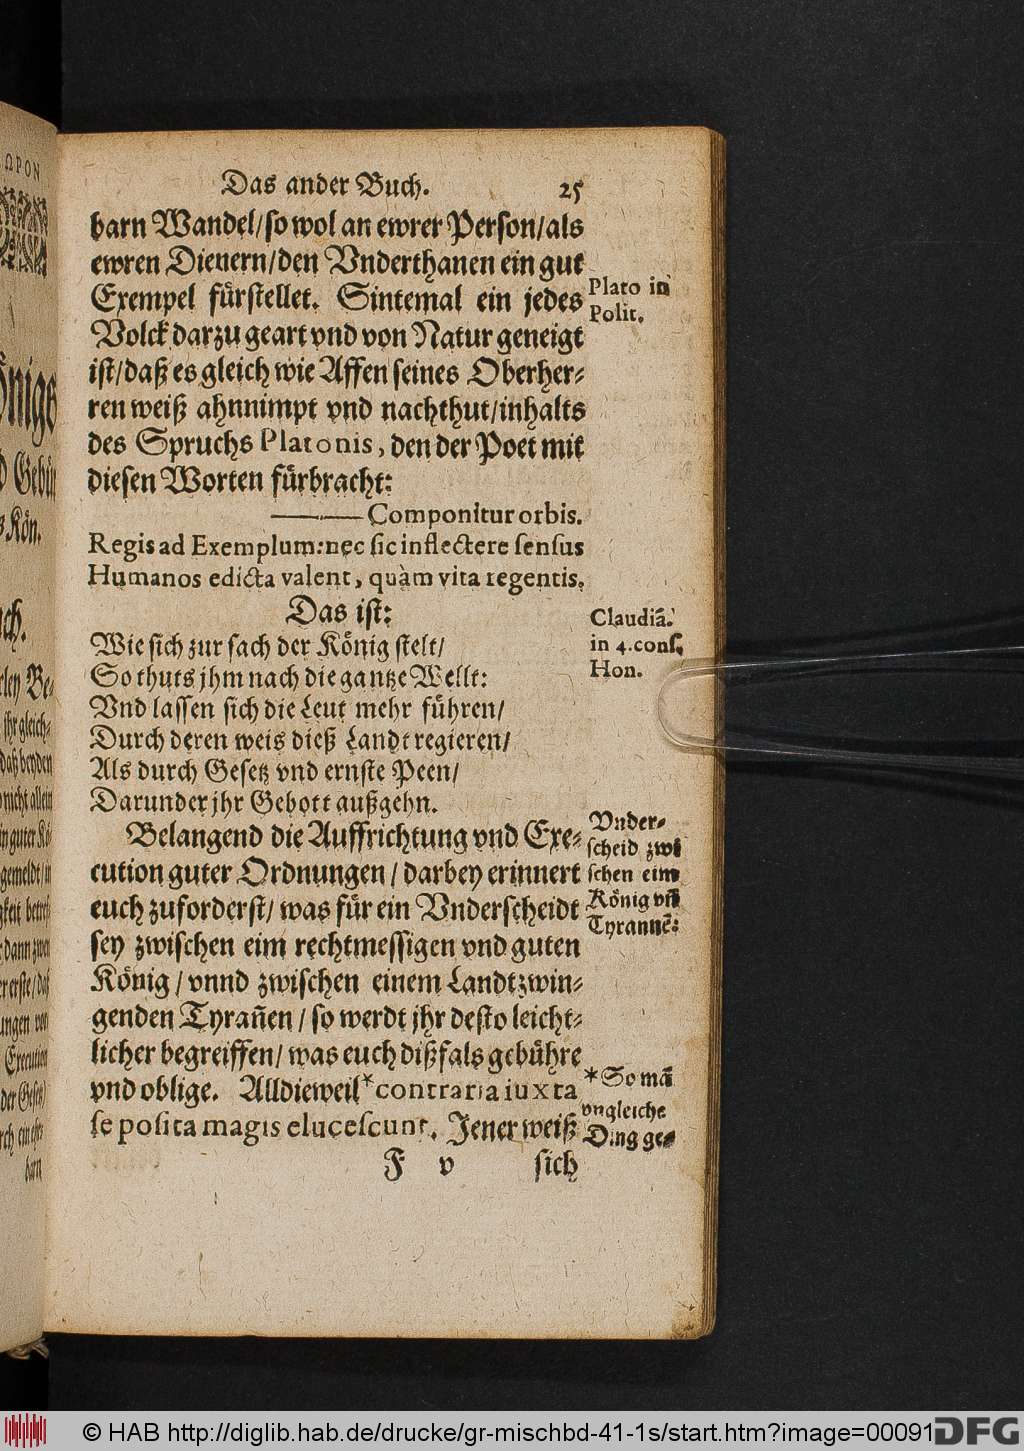 Das ander Buch. 25
barn Wandel/so wol an ewrer Person/als
ewren Dienern/den Vnderthanen ein gut
Exempel fürstellet. Sintemal ein jedes
Volck darzu geart vnd von Natur geneigt
ist/daß es gleich wie Affen seines Oberher-
ren weiß ahnnimpt vnd nachthut/inhalts
des Spruchs Platonis, den der Poet mit
diesen Worten fürbracht:
Plato in
Polit.
Componitur orbis.
Regis ad Exemplum: nec sic inflectere sensus
Humanos edicta valent, quàm vita regentis.
Das ist:
Wie sich zur sach der König stelt/
So thuts jhm nach die gantze Wellt:
Vnd lassen sich die Leut mehr führen/
Durch deren weis dieß Landt regieren/
Als durch Gesetz vnd ernste Peen/
Darunder jhr Gebott außgehn.
Claudiā.
in 4. cons.
Hon.
Belangend die Auffrichtung vnd Exe-
cution guter Ordnungen / darbey erinnert
euch zuforderst/ was für ein Vnderscheidt
sey zwischen eim rechtmessigen vnd guten
König / vnnd zwischen einem Landtzwin-
genden Tyrañen / so werdt jhr desto leicht-
licher begreiffen/ was euch dißfals gebühre
vnd oblige. Alldieweil *contraria iuxta
se posita magis elucescunt. Jener weiß
Vnder-
scheid zwi
schen eim
König vñ
Tyrannē:
*So mā
vngleiche
Ding ge-
F v sich
ΩΡΟΝ
© HAB http://diglib.hab.de/drucke/gr-mischbd-41-1s/start.htm?image=00091
DFG